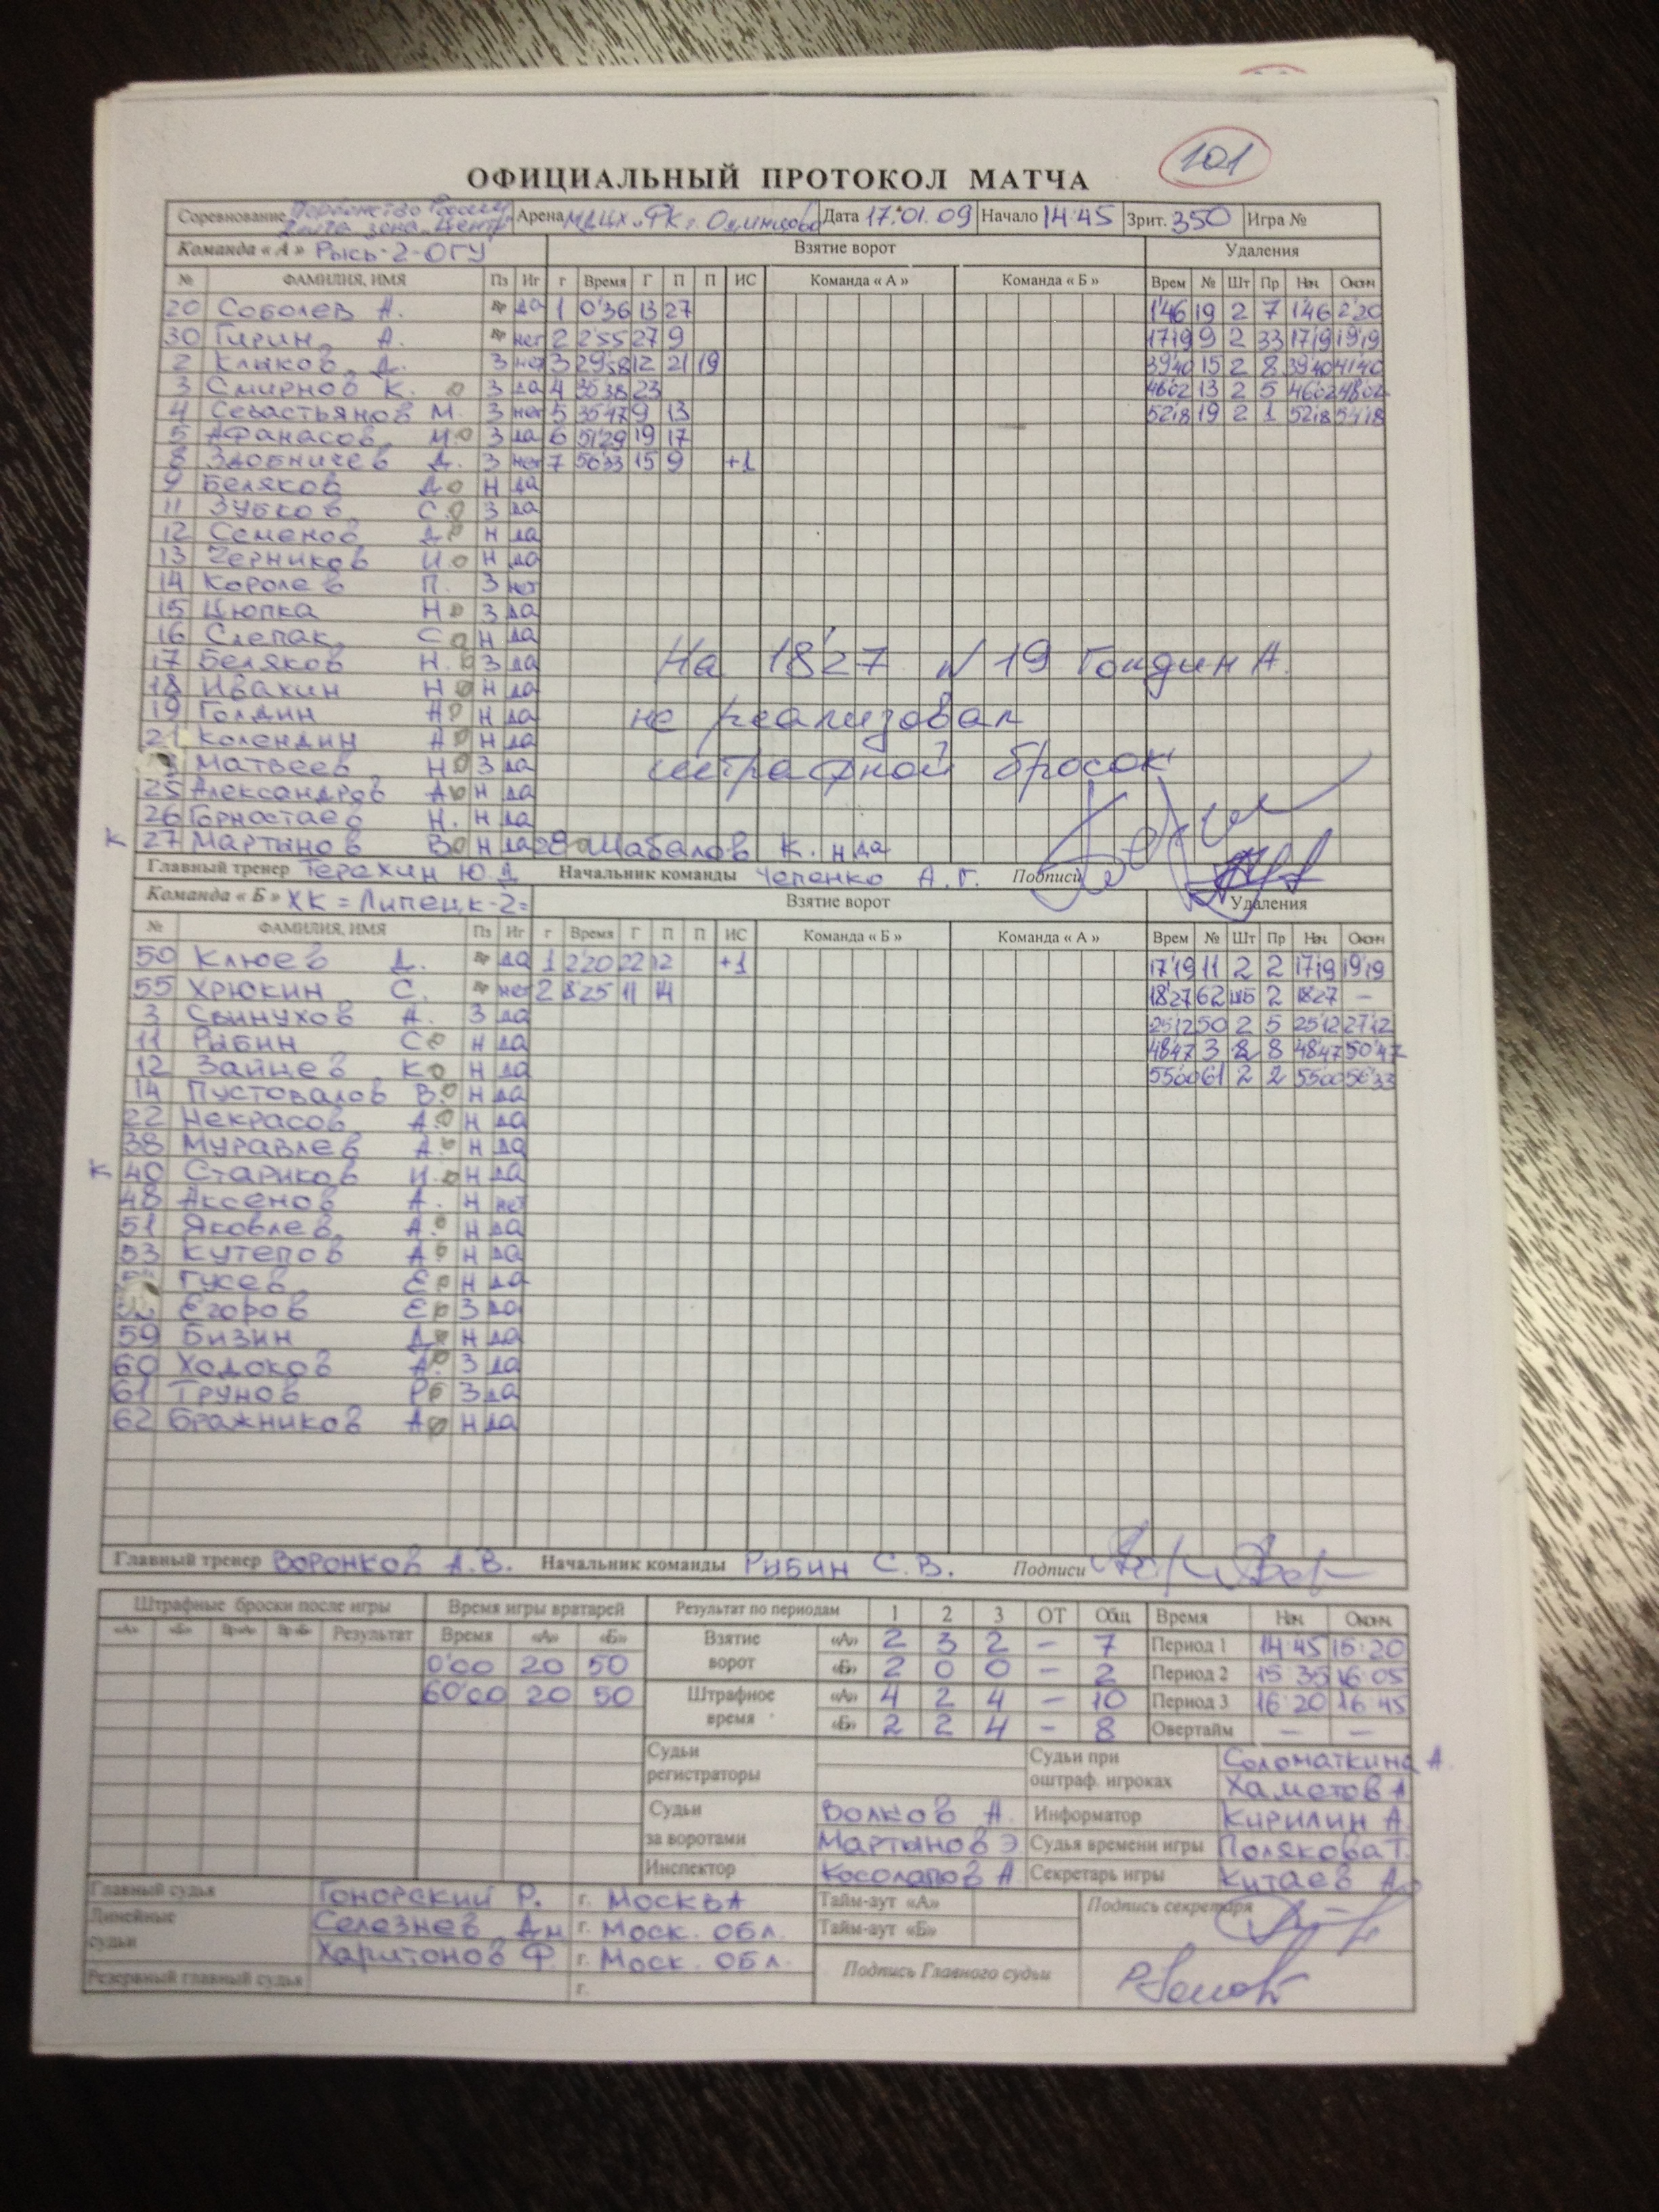 101
ОФИЦИАЛЬНЫЙ ПРОТОКОЛ МАТЧА
Соревнование Первенство России зона "Центр" Арена Дата 17.01.09 Начало 14:45 Зрит. 350 Игра №
Команда « А » Рысь-2-ОГУ Взятие ворот Удаления
№ ФАМИЛИЯ, ИМЯ Пз Иг г Время Г П П ИС Команда « А » Команда « Б » Врем № Шт Пр Нач. Оконч
20 Соболев А. Вр да 1 0'36 13 27 1'46 19 2 7 1'46 2'20
30 Гирин А. Вр нет 2 2'55 27 9 17'19 9 2 33 17'19 19'19
2 Клыков Д. З нет 3 29'58 12 21 19 39'40 15 2 8 39'40 41'40
3 Смирнов К. З да 4 35'38 23 46'02 13 2 5 46'02 48'02
4 Севастьянов М. З нет 5 35'47 9 13 52'18 19 2 1 52'18 54'18
5 Афанасов М З да 6 51'29 19 17
8 Здобничев Д. З нет 7 56'33 15 9 +1
9 Беляков Д Н да
11 Зубков С З да
12 Семенов Д Н да
13 Черников И. Н да
14 Королев П. З нет
15 Цюпка Н З да
16 Слепак С Н да
17 Беляков Н. З да На 18'27 № 19 Голдин А.
18 Ивахин Н Н да
19 Голдин А Н да не реализовал
21 Колендин А Н да
Матвеев Н З да штрафной бросок
25 Александров А Н да
26 Горностаев Н. Н да
К 27 Мартынов В Н да 28 Шабалов К. н да
Главный тренер Терехин Ю.Д Начальник команды Чепенко А.Г. Подписи
Команда « Б » ХК = Липецк-2= Взятие ворот Удаления
№ ФАМИЛИЯ, ИМЯ Пз Иг г Время Г П П ИС Команда « Б » Команда « А » Врем № Шт Пр Нач. Оконч
50 Клюев Д. Вр да 1 2'20 22 12 +1 17'19 11 2 2 17'19 19'19
55 Хрюкин С. Вр нет 2 8'25 11 14 18'27 62 ШБ 2 18'27 —
3 Свинухов А. З да 25'12 50 2 5 25'12 27'12
11 Рыбин С Н да 48'47 3 2 8 48'47 50'47
12 Зайцев К Н да 55'00 61 2 2 55'00 56'33
14 Пустовалов В. Н да
22 Некрасов А. Н да
38 Муравлев А. Н да
К 40 Стариков И. Н да
48 Аксенов А. Н нет
51 Яковлев А. Н да
53 Кутепов А Н да
Гусев Е Н да
Егоров Е З да
59 Бизин Д Н да
60 Ходоков А. З да
61 Трунов Р З да
62 Бражников А Н да
Главный тренер Воронков А.В. Начальник команды Рыбин С.В. Подписи
Штрафные броски после игры Время игры вратарей Результат по периодам 1 2 3 ОТ Общ Время Нач. Оконч.
«А» «Б» Вр«А» Вр«Б» Результат Время «А» «Б» Взятие ворот «А» 2 3 2 — 7 Период 1 14:45 15:20
0'00 20 50 «Б» 2 0 0 — 2 Период 2 15 35 16:05
60'00 20 50 Штрафное время «А» 4 2 4 — 10 Период 3 16:20 16:45
«Б» 2 2 4 — 8 Овертайм — —
Судьи регистраторы Судьи при оштраф. игроках Соломаткина А.
Хаметов А
Судьи за воротами Волков А. Информатор Кирилин А.
Мартынов Э Судья времени игры Полякова Т.
Инспектор Косолапов А Секретарь игры Китаев А
Главный судья Гонорский Р. г. Москва Тайм-аут «А» Подпись секретаря
Линейные судьи Селезнев Дм г. Моск. обл. Тайм-аут «Б»
Харитонов Ф. г. Моск. обл. Подпись Главного судьи
Резервный главный судья г.